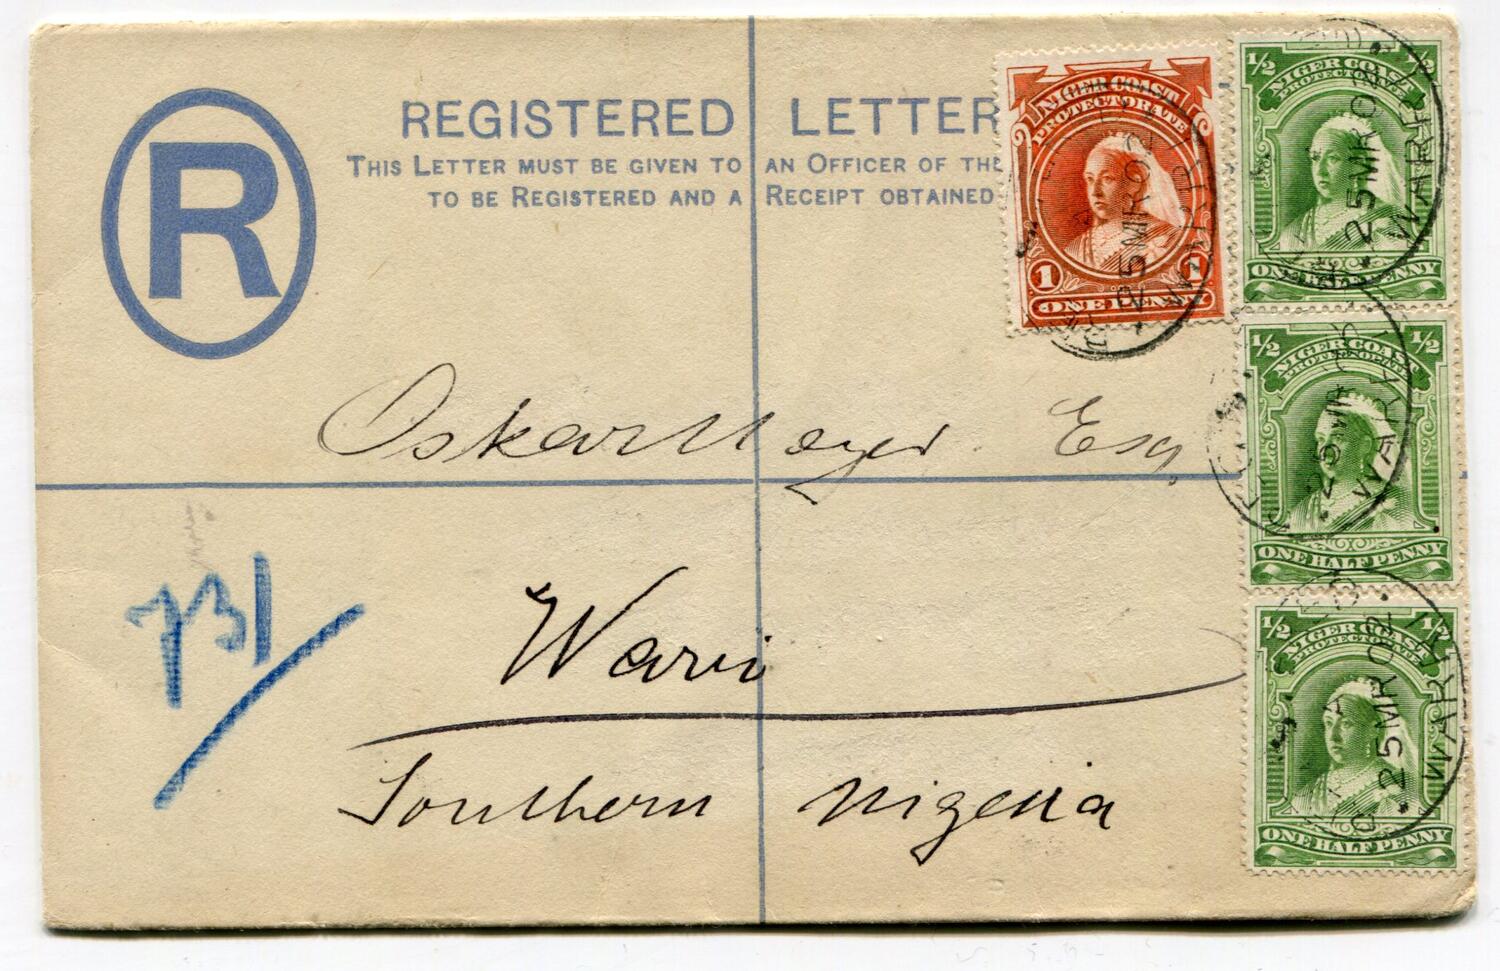 R
REGISTERED LETTER
THIS LETTER MUST BE GIVEN TO AN OFFICER OF THE
TO BE REGISTERED AND A RECEIPT OBTAINED
NIGER COAST
PROTECTORATE
1 1
ONE PENNY
25 MR 02
WARRI
½ ½
NIGER COAST
PROTECTORATE
ONE HALF PENNY
25 MR 02
WARRI
½ ½
NIGER COAST
PROTECTORATE
ONE HALF PENNY
25 MR 02
WARRI
½ ½
NIGER COAST
PROTECTORATE
ONE HALF PENNY
25 MR 02
WARRI
Oskar Mayer Esq,
Warri
Southern Nigeria
731